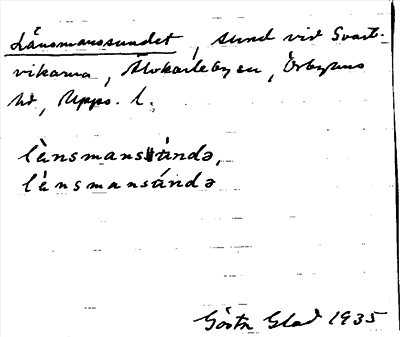 Länsmanssundet, sund vid Svart-
vikarna, Älvkarlebyån, Örbyhus
hd, Upps. l.
lä̀nsmansúndə,
lä́nsmansúndə
Gösta Glad 1935